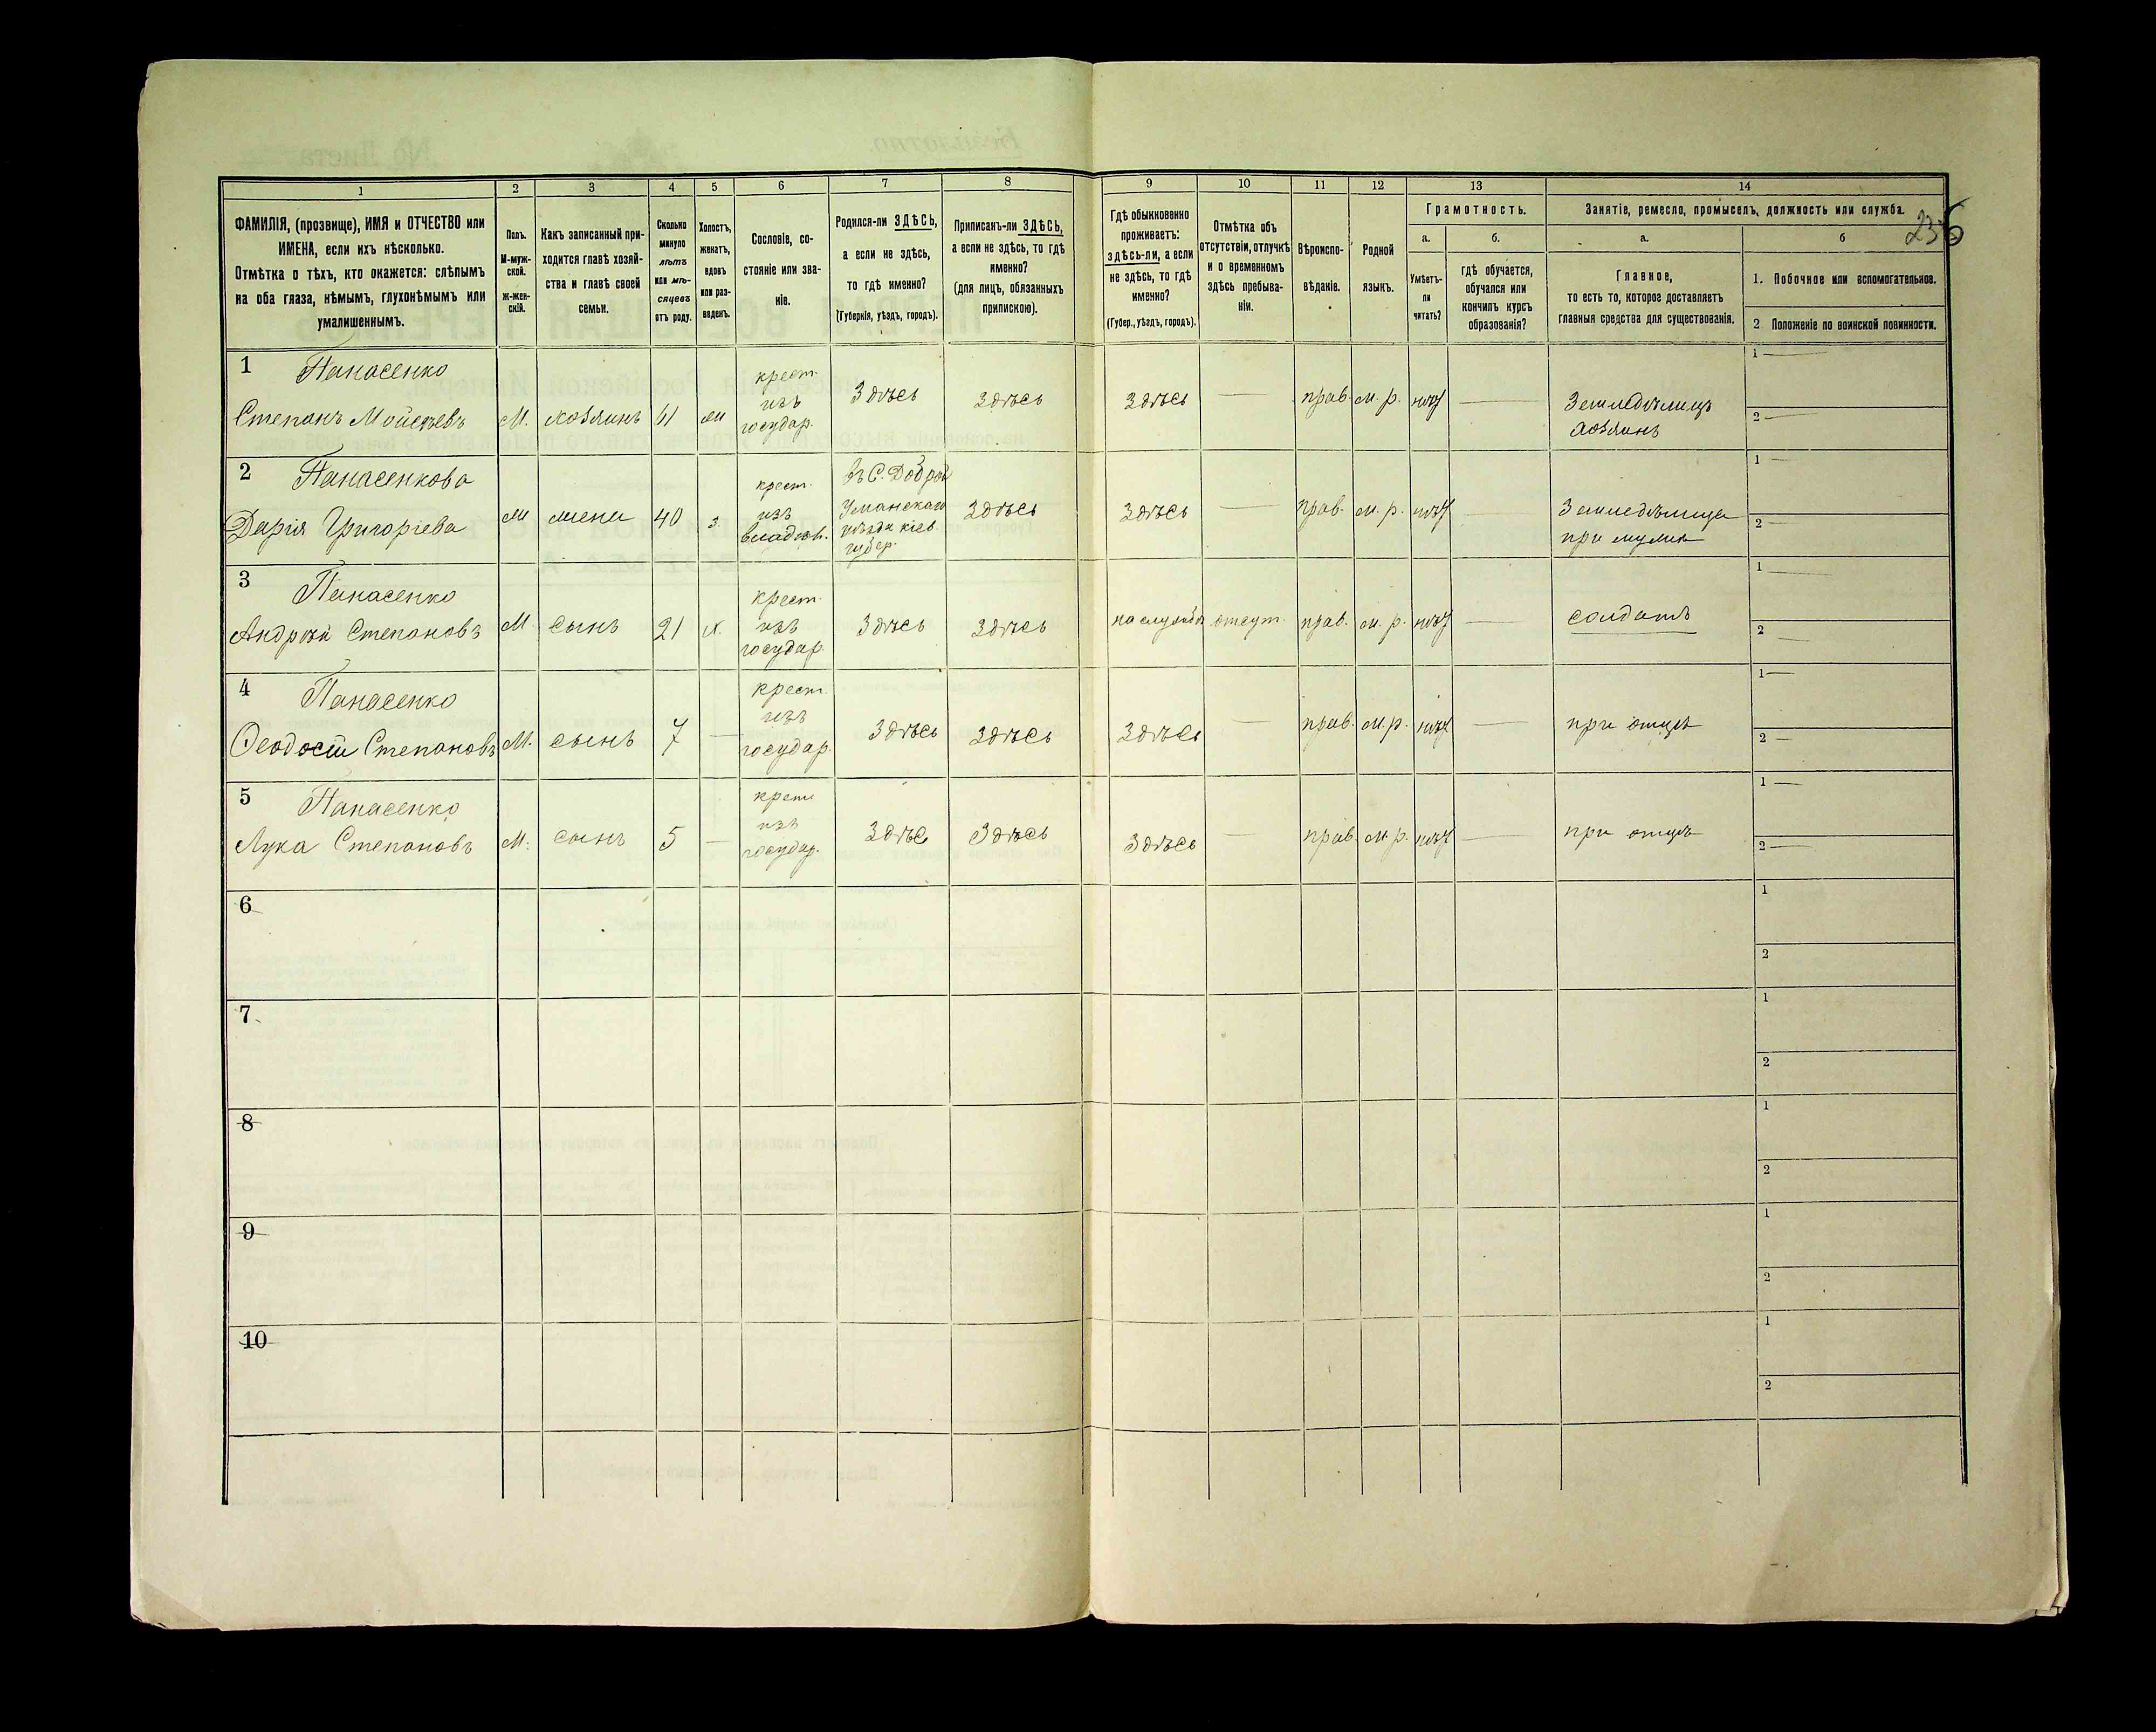 1 2 3 4 5 6 7 8 9 10 11 12 13 14
ФАМИЛІЯ, (прозвище), ИМЯ и ОТЧЕСТВО или
ИМЕНА, если ихъ нѣсколько.
Отмѣтка о тѣхъ, кто окажется: слѣпымъ
на оба глаза, нѣмымъ, глухонѣмымъ или
умалишеннымъ.
Полъ.
М-муж-
ской.
Ж-жен-
скій.
Какъ записанный при-
ходится главѣ хозяй-
ства и главѣ своей
семьи.
Сколько
минуло
лѣтъ
или мѣ-
сяцевъ
отъ роду.
Холостъ,
женатъ,
вдовъ
или раз-
веденъ.
Сословіе, со-
стояніе или зва-
ніе.
Родился-ли ЗДѢСЬ,
а если не здѣсь,
то гдѣ именно?
(Губернія, уѣздъ, городъ).
Приписанъ-ли ЗДѢСЬ,
а если не здѣсь, то гдѣ
именно?
(для лицъ, обязанныхъ
припискою).
Гдѣ обыкновенно
проживаетъ:
здѣсь-ли, а если
не здѣсь, то гдѣ
именно?
(Губер., уѣздъ, городъ).
Отмѣтка объ
отсутствіи, отлучкѣ
и о временномъ
здѣсь пребыва-
ніи.
Вѣроиспо-
вѣданіе.
Родной
языкъ.
Грамотность.
а.
Умѣетъ-
ли
читать?
б.
гдѣ обучается,
обучался или
кончилъ курсъ
образованія?
Занятіе, ремесло, промыселъ, должность или служба.
236
а.
Главное,
то есть то, которое доставляетъ
главныя средства для существованія.
б
1. Побочное или вспомогательное.
2 Положеніе по воинской повинности.
1 Панасенко
Степанъ Мойсеевъ М. хозяинъ 61
крест.
изъ
государ.
Здѣсь Здѣсь Здѣсь — прав. м. р. —
Земледѣлецъ
хозяинъ
1 —
2 —
2 Панасенкова
Дарія Григоріева жена 40 з.
крест.
изъ
въ С. Доброй
Уманскаго
уѣзда кіев
губер.
Здѣсь Здѣсь — прав. м. р. —
Земледѣлица
при мужѣ
1 —
2 —
3 Панасенко
Андрей Степановъ М. сынъ 21 х.
крест.
изъ
государ.
Здѣсь Здѣсь на службѣ отсут. прав. м. р. —
солдатъ
1 —
2 —
4 Панасенко
Ѳеодосій Степановъ М. сынъ 7 —
крест.
изъ
государ.
Здѣсь Здѣсь Здѣсь — прав. м. р. —
при отцѣ
1 —
2 —
5 Панасенко
Лука Степановъ М. сынъ 5 —
крест
изъ
государ.
Здѣсь Здѣсь Здѣсь — прав. м. р. —
при отцѣ
1 —
2 —
6
1
2
7
1
2
8
1
2
9
1
2
10
1
2